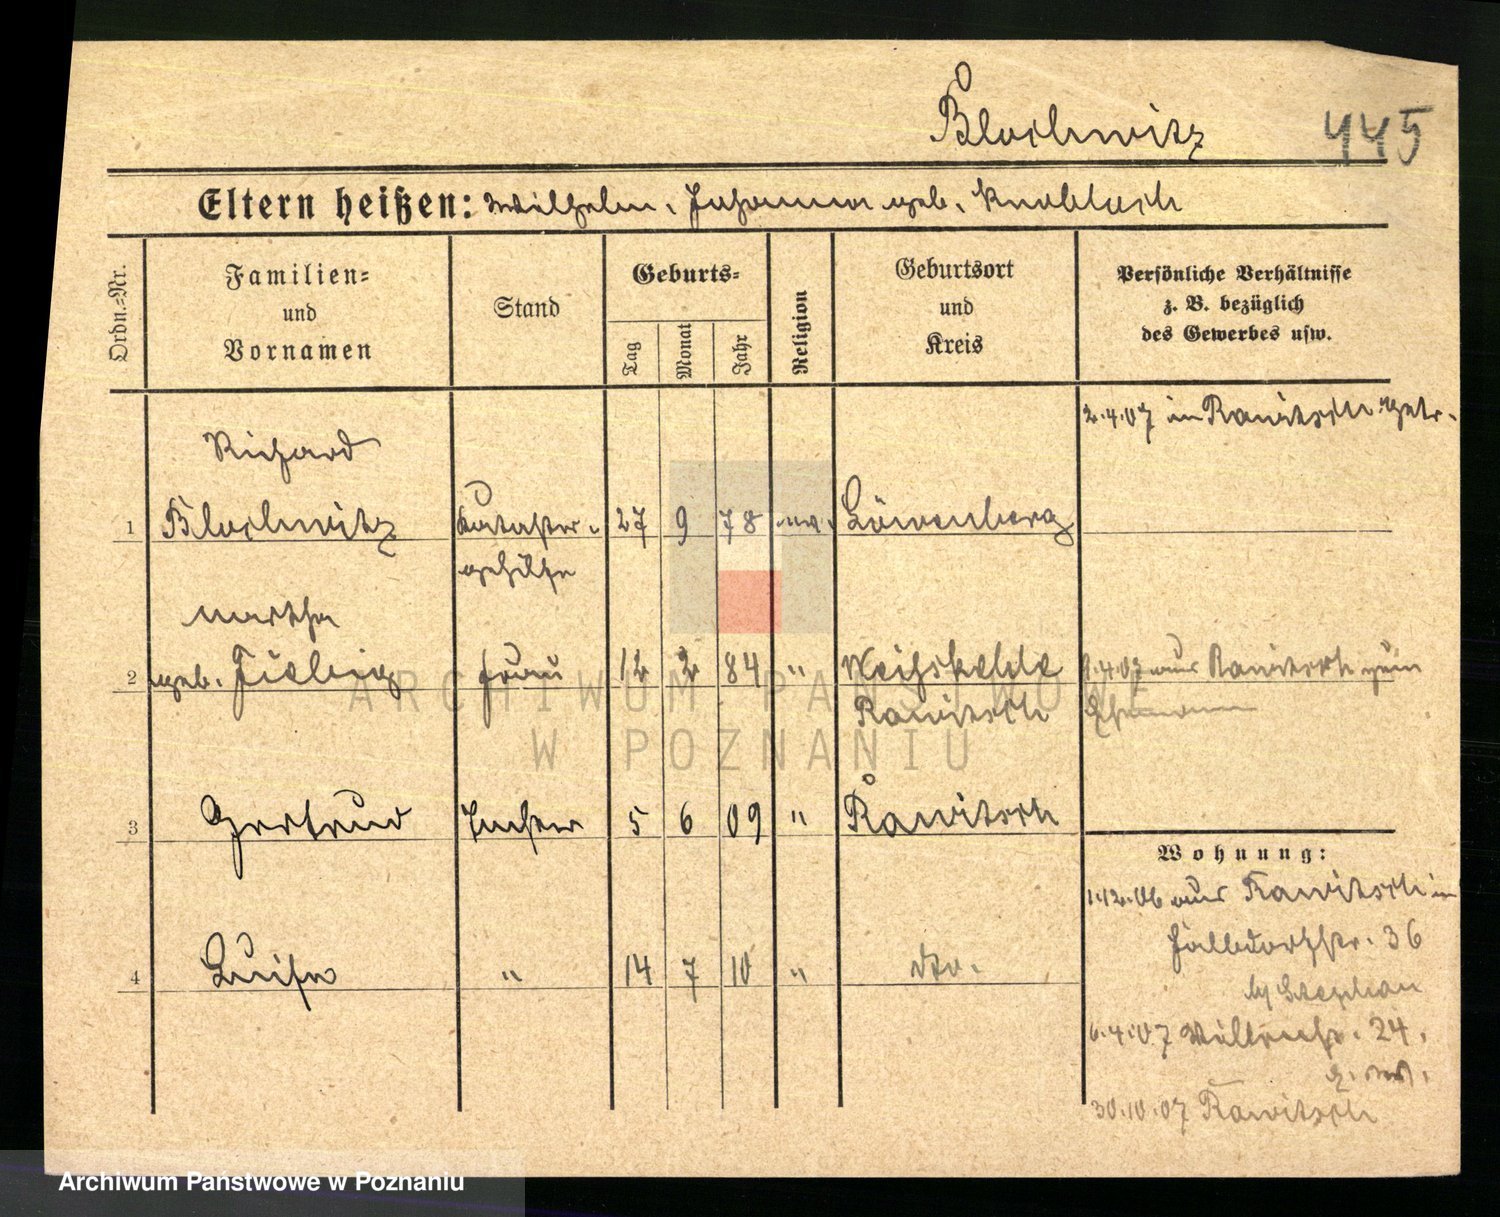 Blochwitz 445
Eltern heißen: Wilhelm, Johanna geb. Knobloch
Ordn.-Nr.
Familien-
und
Vornamen
Stand
Geburts-
Tag
Monat
Jahr
Religion
Geburtsort
und
Kreis
Persönliche Verhältnisse
z. B. bezüglich
des Gewerbes usw.
2.4.07 in Rawitsch getr.
Richard
1 Blochwitz Kataster- 27 9 78 ev. Löwenberg
gehilfe
Martha
2 geb. Fiebig Frau 12 2 84 " 9.4.07 aus Rawitsch zum
Rawitsch Ehemann
3 Gertrud Tochter 5 6 09 " Rawitsch
Wohnung:
1.12.06 aus Rawitsch in
36
4 Luise " 14 7 10 " dto.
b/ Stephan
6.4.07 24,
30.10.07 Rawitsch
ARCHIWUM PAŃSTWOWE
W POZNANIU
Archiwum Państwowe w Poznaniu